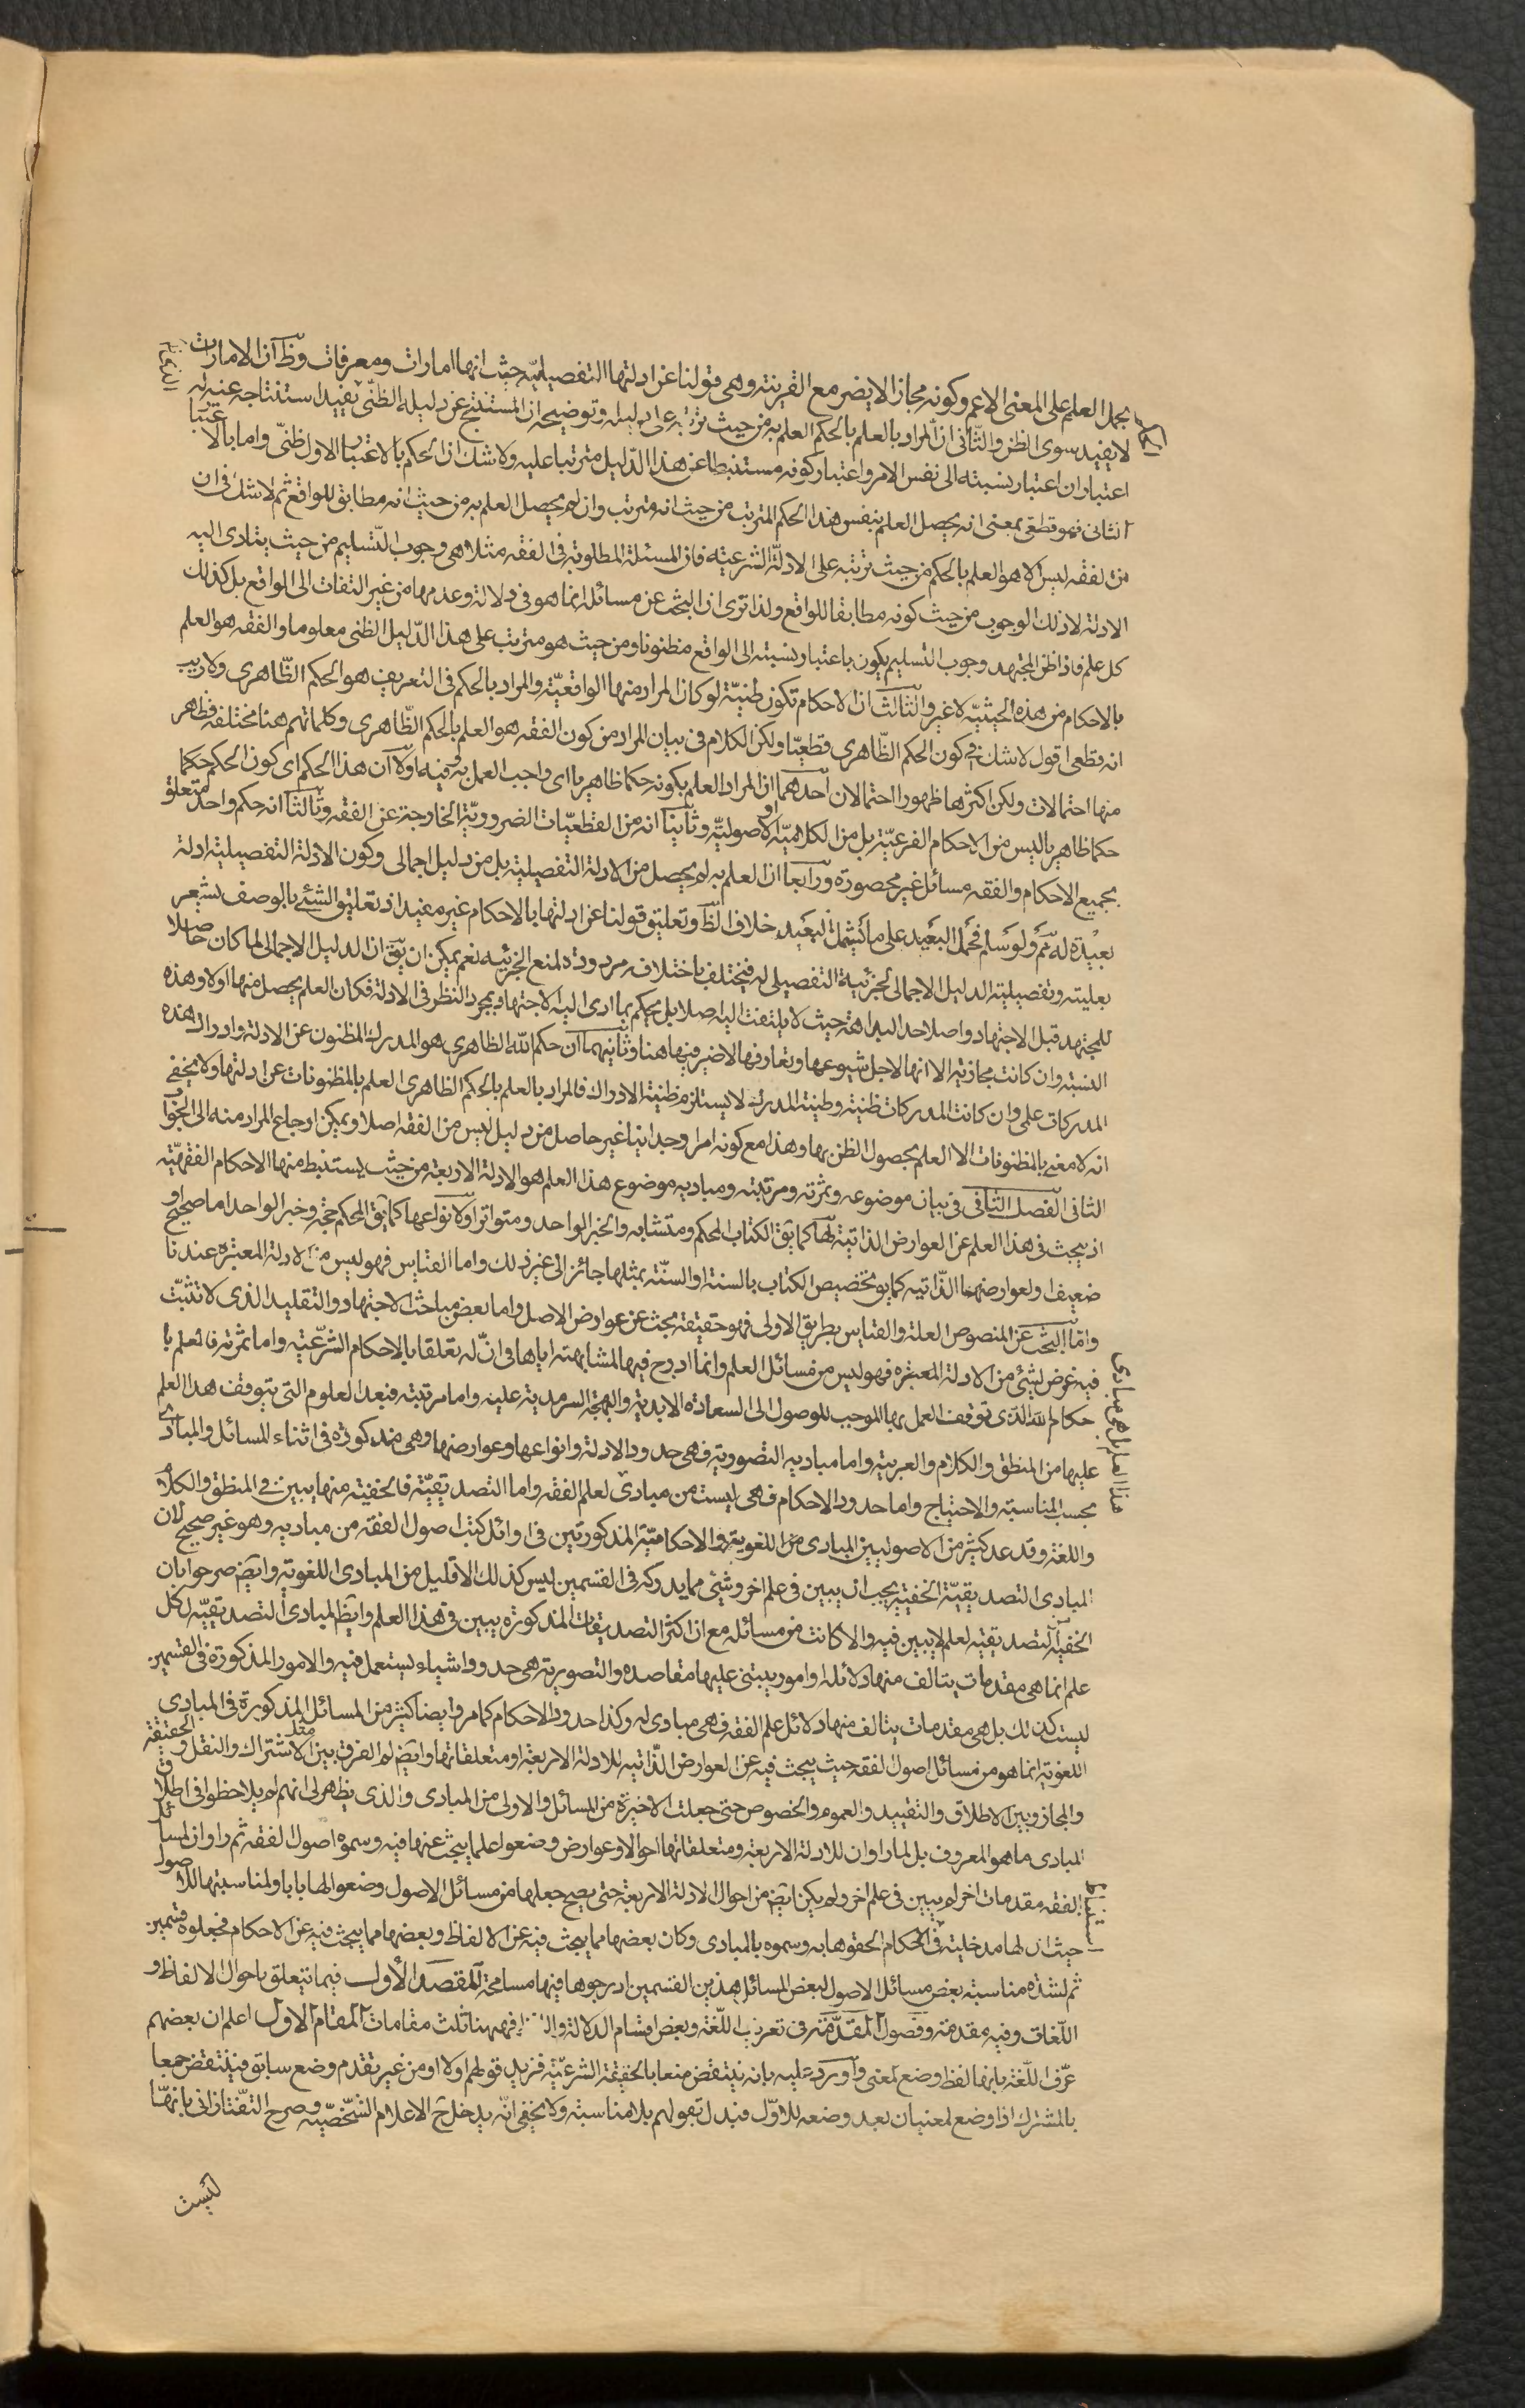 يحمل العلم على المعنى الاعم وكونه مجازا لا يضر مع القرينة وهى قولنا عن ادلتها التفصيلية حيث انها امارات ومعرفات وظ ان الامارات
لا يفيد سوى الظن والثانى ان المراد بالعلم بالحكم العلم به من حيث ترتبه على دليله وتوضيحه ان المستنتج عن دليله الظنى يفيد استنتاجه عنه له
اعتباران اعتبار نسبته الى نفس الامر واعتبار كونه مستنبطا عن هذا الدليل مترتبا عليه ولا شك ان الحكم بالاعتبار الاول ظنى واما بالاعتبار
الثانى فهو قطعى بمعنى انه يحصل العلم بنفس هذا الحكم المترتب من حيث انه مترتب وان لم يحصل العلم به من حيث انه مطابق للواقع ثم لا شك فى ان
الفقه ليس الا هو العلم بالحكم من حيث ترتبه على الادلة الشرعية فان المسئلة المطلوبة فى الفقه مثلا هى وجوب التسليم من حيث يتادى اليه
الادلة لا ذلك الوجوب من حيث كونه مطابقا للواقع ولذا ترى ان البحث عن مسائله انما هو فى دلالة وعدمها من غير التفات الى الواقع بل كذلك
كل علم فاذا ظن المجتهد وجوب التسليم يكون باعتبار نسبته الى الواقع مظنونا ومن حيث هو مترتب على هذا الدليل الظنى معلوما والفقه هو العلم
بالاحكام من هذه الحيثية لا غير والثالث ان الاحكام تكون ظنية لو كان المراد منها الواقعية والمراد بالحكم فى التعريف هو الحكم الظاهرى ولا ريب
انه قطعى اقول لا شك فى كون الحكم الظاهرى قطعيا ولكن الكلام فى بيان المراد من كون الفقه هو العلم بالحكم الظاهرى وكلماتهم هنا مختلفة فظاهر
منها احتمالات ولكن اكثرها ظهورا احتمالان احدهما ان المراد العلم بكونه حكما ظاهريا اى واجب العمل به وفيه اولا ان هذا الحكم اى كون الحكم حكما
حكما ظاهريا ليس من الاحكام الفرعية بل من الكلامية او الاصولية وثانيا انه من القطعيات الضرورية الخارجة عن الفقه وثالثا انه حكم واحد متعلق
بجميع الاحكام والفقه مسائل غير محصورة ورابعا ان العلم به لم يحصل من الادلة التفصيلية بل من دليل اجمالى وكون الادلة التفصيلية ادلة
بعيدة له ثم ولو سلم فحمل البعيد على ما يشمل البعيد خلاف الظ وتعليق قولنا عن ادلتها بالاحكام غير مفيد اذ تعليق الشئ بالوصف يشعر
بعليته وتفصيلية الدليل الاجمالى لجزئية التفصيلى له فيختلف باختلافه مردودة لمنع الجزئية نعم يمكن ان يق ان الدليل الاجمالى لما كان حاصلا
للمجتهد قبل الاجتهاد واصلا حد البداهة حيث لا يلتفت اليه اصلا بل يحكم بما ادى اليه الاجتهاد بمجرد النظر فى الادلة فكان العلم يحصل منها اولا وهذه
النسبة وان كانت مجازية الا انها لاجل شيوعها وتعارفها لا ضير فيها هنا وثانيهما ان حكم الله الظاهرى هو المدرك المظنون عن الادلة وادراك هذه
المدركات على وان كانت المدركات ظنية وظنية المدرك لا يستلزم ظنية الادراك فالمراد بالعلم بالحكم الظاهرى العلم بالمظنونات عن ادلتها ولا يخفى
انه لا معنى بالمظنونات الا العلم بحصول الظن بها وهذا مع كونه امرا وجدانيا غير حاصل من دليل ليس من الفقه اصلا ويمكن ارجاع المراد منه الى الجواب
الثانى الفصل الثانى فى بيان موضوعه وثمرته ومرتبته ومباديه موضوع هذا العلم هو الادلة الاربعة من حيث يستنبط منها الاحكام الفقهية
اذ يبحث فى هذا العلم عن العوارض الذاتية لها كما يق الكتاب المحكم ومتشابه والخبر الواحد ومتواتر او لانواعها كما يق المحكم حجة وخبر الواحد اما صحيح او
ضعيف او لعوارضها الذاتية كما يق تخصيص الكتاب بالسنة او السنة بمثلها جائز الى غير ذلك واما القياس فهو ليس من الادلة المعتبرة عندنا
واما البحث عن المنصوص العلة والقياس بطريق الاولى فهو حقيقة بحث عن عوارض الاصل واما بعض مباحث الاجتهاد والتقليد الذى لا تثبت
فيه غرض لشئ من الادلة المعتبرة فهو ليس من مسائل العلم وانما ادرج فيها لمشابهته اياها فى ان له تعلقا بالاحكام الشرعية واما ثمرته فالعلم با
حكام الله الذى توقف العمل بها الموجب للوصول الى السعادة الابدية والبهجة السرمدية عليه واما مرتبته فبعد العلوم التى يتوقف هذا العلم
عليها من المنطق والكلام والعربية واما مباديه التصورية فهى حدود الادلة وانواعها وعوارضها وهى مذكورة فى اثناء المسائل والمبادى
بحسب المناسبة والاحتياج واما حدود الاحكام فهى ليست من مبادى لعلم الفقه واما التصديقية فالخفية منها يبين فى المنطق والكلام
هذا العلم بل هى مبادى
واللغة وقد عد كثير من الاصوليين المبادى من اللغوية والاحكامية المذكورتين فى اوائل كتب اصول الفقه من مباديه وهو غير صحيح لان
المبادى التصديقية الخفية يجب ان يبين فى علم اخر وشئ مما يدركه فى القسمين ليس كذلك الا قليل من المبادى اللغوية وايض صرحوا بان
الخفية التصديقية لعلم لا يبين فيه والا كانت من مسائله مع ان اكثر التصديقات المذكورة يبين فى هذا العلم وايض المبادى التصديقية لكل
علم انما هى مقدمات يتالف منها دلائله او امور يبتنى عليها مقاصده والتصورية هى حدود اشياء يستعمل فيه والامور المذكورة فى القسمين
ليست كذلك بل هى مقدمات يتالف منها دلائل علم الفقه فهى مبادى له وكذا حدود الاحكام كما مر وايضا كثير من المسائل المذكورة فى المبادى
اللغوية انما هو من مسائل اصول الفقه حيث يبحث فيه عن العوارض الذاتية للادلة الاربعة او متعلقاتها وايض لم الفرق بين مثل الاشتراك والنقل والحقيقة
والمجاز وبين الاطلاق والتقييد والعموم والخصوص حتى جعلت الاخيرة من المسائل والاولى من المبادى والذى يظهر لى انهم لم يلاحظوا فى اطلاق
المبادى ما هو المعروف بل لما راوا ان للادلة الاربعة ومتعلقاتها احوالا وعوارض وضعوا علما يبحث عنها فيه وسموه اصول الفقه ثم راوا ان لمسائل
الفقه مقدمات اخر لم يبين فى علم اخر ولم يكن ايض من احوال الادلة الاربعة حتى يصح جعلها من مسائل الاصول وضعوا لها بابا ولمناسبتها للاصول
حيث ان لها مدخلية فى استنباط الاحكام الحقوها به وسموه بالمبادى وكان بعضها مما يبحث فيه عن الالفاظ وبعضها مما يبحث فيه عن الاحكام فجعلوه قسمين
ثم لشدة مناسبة بعض مسائل الاصول لبعض المسائل هذين القسمين ادرجوها فيها مسامحة المقصد الاول فيما يتعلق باحوال الالفاظ و
اللغات وفيه مقدمة وفصول المقدمة فى تعريف اللغة وبعض اقسام الدلالة فههنا ثلث مقامات المقام الاول اعلم ان بعضهم
عرف اللغة بانها لفظ وضع لمعنى واورد عليه بانه ينتقض منعا بالحقيقة الشرعية فزيد قولهم اولا او من غير تقدم وضع سابق فينتقض جمعا
بالمشترك اذا وضع لمعنيان بعد وضعه للاول فبدل بقولهم بلا مناسبة ولا يخفى انه يدخل ح الاعلام الشخصية وصرح التفتازانى بانها
ليست